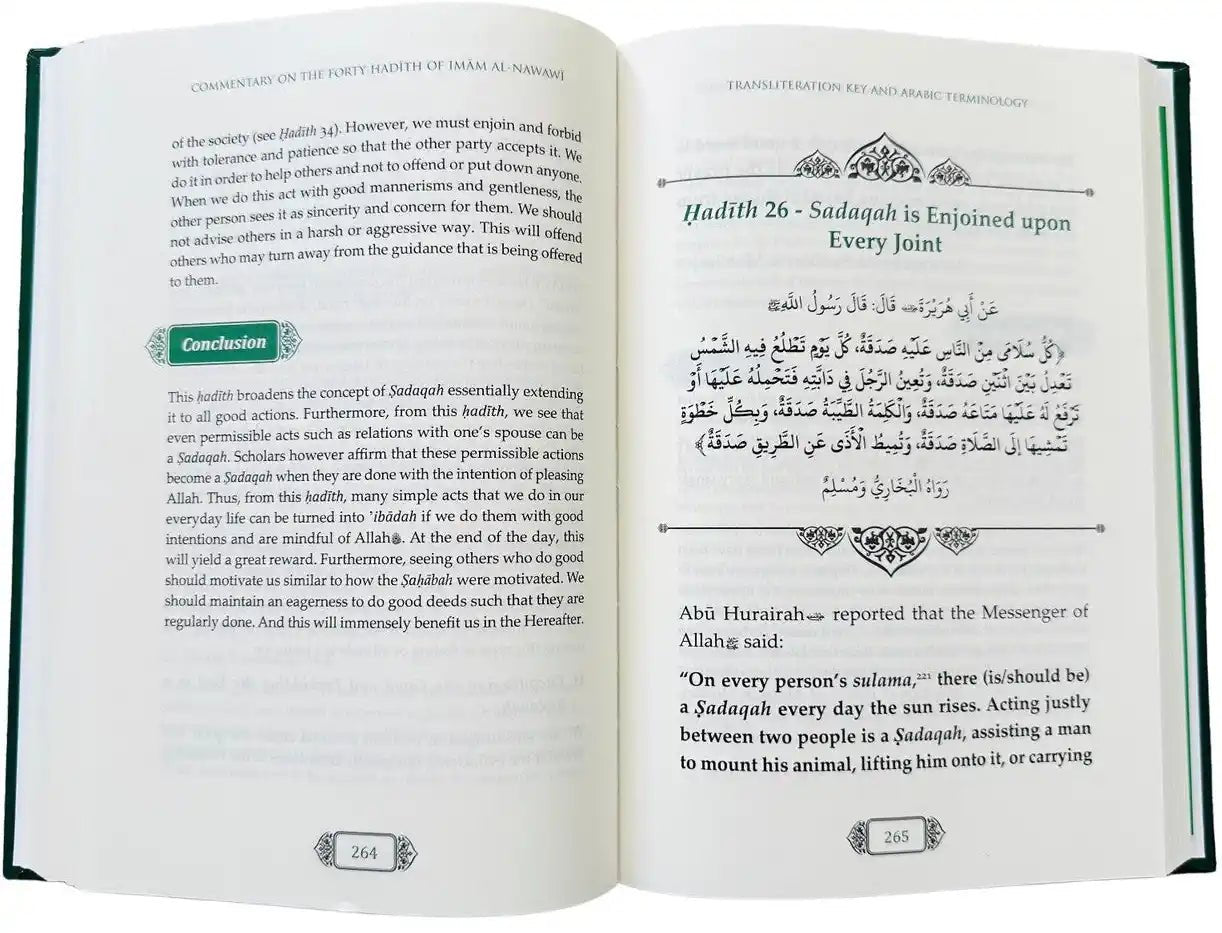 COMMENTARY ON THE FORTY HADĪTH OF IMĀM AL-NAWAWĪ
of the society (see Ḥadīth 34). However, we must enjoin and forbid
with tolerance and patience so that the other party accepts it. We
do it in order to help others and not to offend or put down anyone.
When we do this act with good mannerisms and gentleness, the
other person sees it as sincerity and concern for them. We should
not advise others in a harsh or aggressive way. This will offend
others who may turn away from the guidance that is being offered
to them.
Conclusion
This ḥadīth broadens the concept of Ṣadaqah essentially extending
it to all good actions. Furthermore, from this ḥadīth, we see that
even permissible acts such as relations with one's spouse can be
a Ṣadaqah. Scholars however affirm that these permissible actions
become a Ṣadaqah when they are done with the intention of pleasing
Allah. Thus, from this ḥadīth, many simple acts that we do in our
everyday life can be turned into 'ibādah if we do them with good
intentions and are mindful of Allahﷻ. At the end of the day, this
will yield a great reward. Furthermore, seeing others who do good
should motivate us similar to how the Ṣaḥābah were motivated. We
should maintain an eagerness to do good deeds such that they are
regularly done. And this will immensely benefit us in the Hereafter.
264
TRANSLITERATION KEY AND ARABIC TERMINOLOGY
Ḥadīth 26 - Sadaqah is Enjoined upon
Every Joint
عَنْ أَبِي هُرَيْرَةَ قَالَ: قَالَ رَسُولُ اللَّهِﷺ
﴿كُلُّ سُلَامَى مِنَ النَّاسِ عَلَيْهِ صَدَقَةٌ، كُلَّ يَوْمٍ تَطْلُعُ فِيهِ الشَّمْسُ
تَعْدِلُ بَيْنَ اثْنَيْنِ صَدَقَةٌ، وَتُعِينُ الرَّجُلَ فِي دَابَّتِهِ فَتَحْمِلُهُ عَلَيْهَا أَوْ
تَرْفَعُ لَهُ عَلَيْهَا مَتَاعَهُ صَدَقَةٌ، وَالْكَلِمَةُ الطَّيِّبَةُ صَدَقَةٌ، وَبِكُلِّ خَطْوَةٍ
تَمْشِيهَا إِلَى الصَّلَاةِ صَدَقَةٌ، وَتُمِيطُ الْأَذَى عَنِ الطَّرِيقِ صَدَقَةٌ﴾
رَوَاهُ الْبُخَارِيُّ وَمُسْلِمٌ
Abū Hurairah reported that the Messenger of
Allahﷺ said:
“On every person's sulama,²²¹ there (is/should be)
a Ṣadaqah every day the sun rises. Acting justly
between two people is a Ṣadaqah, assisting a man
to mount his animal, lifting him onto it, or carrying
265